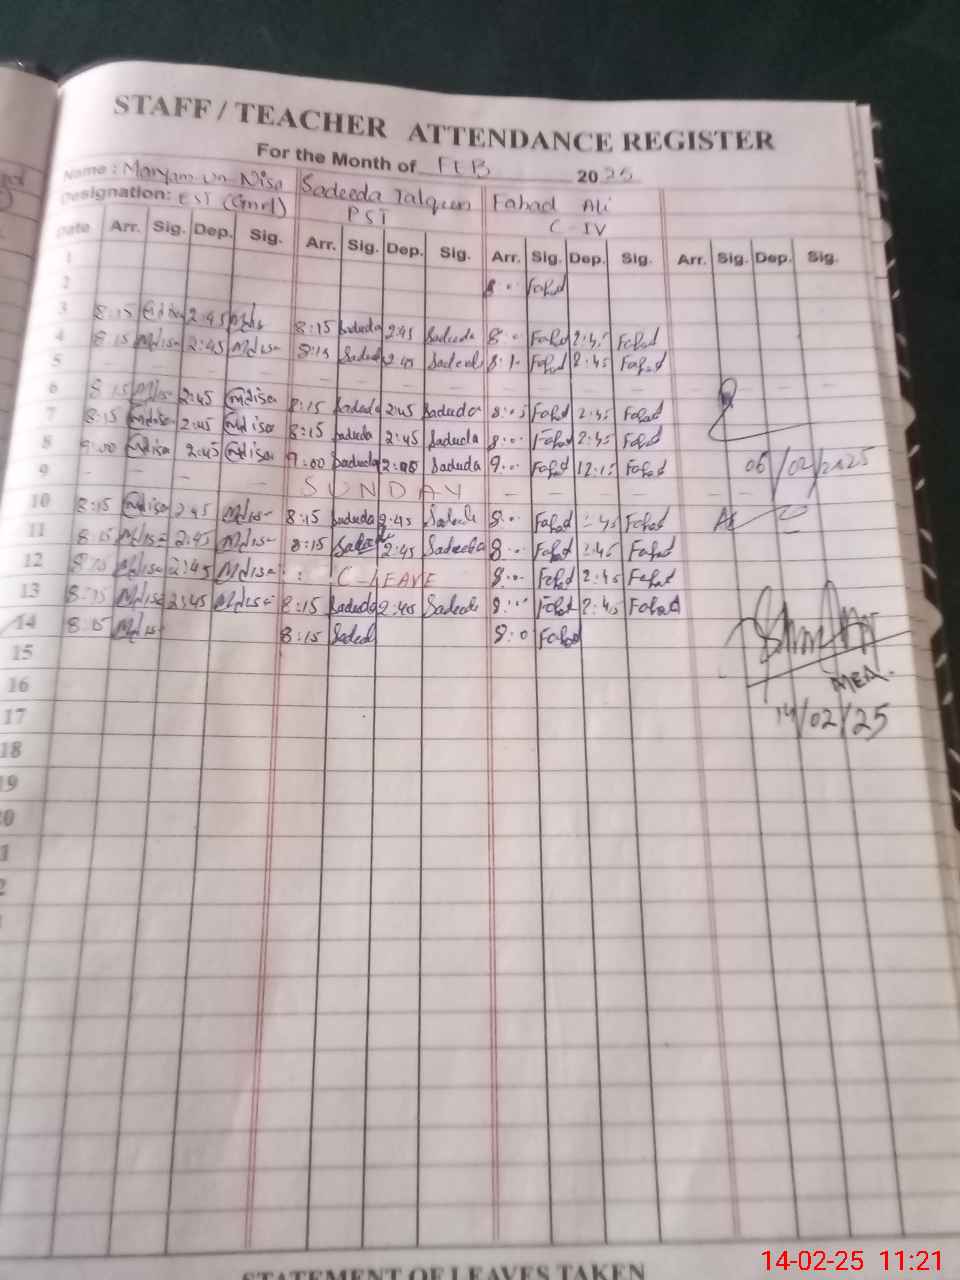 STAFF / TEACHER ATTENDANCE REGISTER
For the Month of FEB 2025
Name : Maryam un Nisa Sadeeda Talqeen Fahad Ali
Designation: EST (Gnrl) PST C-IV
Date Arr. Sig. Dep. Sig. Arr. Sig. Dep. Sig. Arr. Sig. Dep. Sig. Arr. Sig. Dep. Sig.
1
2 8:00 Fahad
3 8:15 2:45 8:15 Sadeeda 2:45 Sadeeda 8:00 Fahad 2:45 Fahad
4 8:15 Mdisa 2:45 Mdisa 8:15 Sadeed 2:45 Sadeed Fahad 2:45 Fahad
5 – – – –
6 8:15 Mdisa 2:45 Mdisa 8:15 Saduda 2:45 Saduda 8:05 Fahad 2:45 Fahad
7 8:15 Mdisa 2:45 Mdisa 8:15 Saduda 2:45 Saduda 8:00 Fahad 2:45 Fahad
8 9:00 Mdisa 2:45 Mdisa 9:00 Saduda Saduda 9:00 Fahad 12:15 Fahad 06/02/2025
9 – – – – SUNDAY – – – –
10 8:15 Mdisa 2:45 Mdisa 8:15 Saduda 2:45 Sadeeda 8:00 Fahad 2:45 Fahad
11 8:15 Mdisa 2:45 Mdisa 8:15 2:45 Sadeeda 8:00 Fahad 2:45 Fahad
12 8:15 Mdisa 2:45 Mdisa C-LEAVE 8:00 Fahad 2:45 Fahad
13 8:15 Mdisa 2:45 Mdisa 8:15 Saduda 2:45 Sadeeda 8:00 Fahad 2:45 Fahad
14 8:15 Mdisa 8:15 Sadeed 8:0 Fahad
15
16 MEA.
17 14/02/25
18
19
STATEMENT OF LEAVES TAKEN
14-02-25 11:21